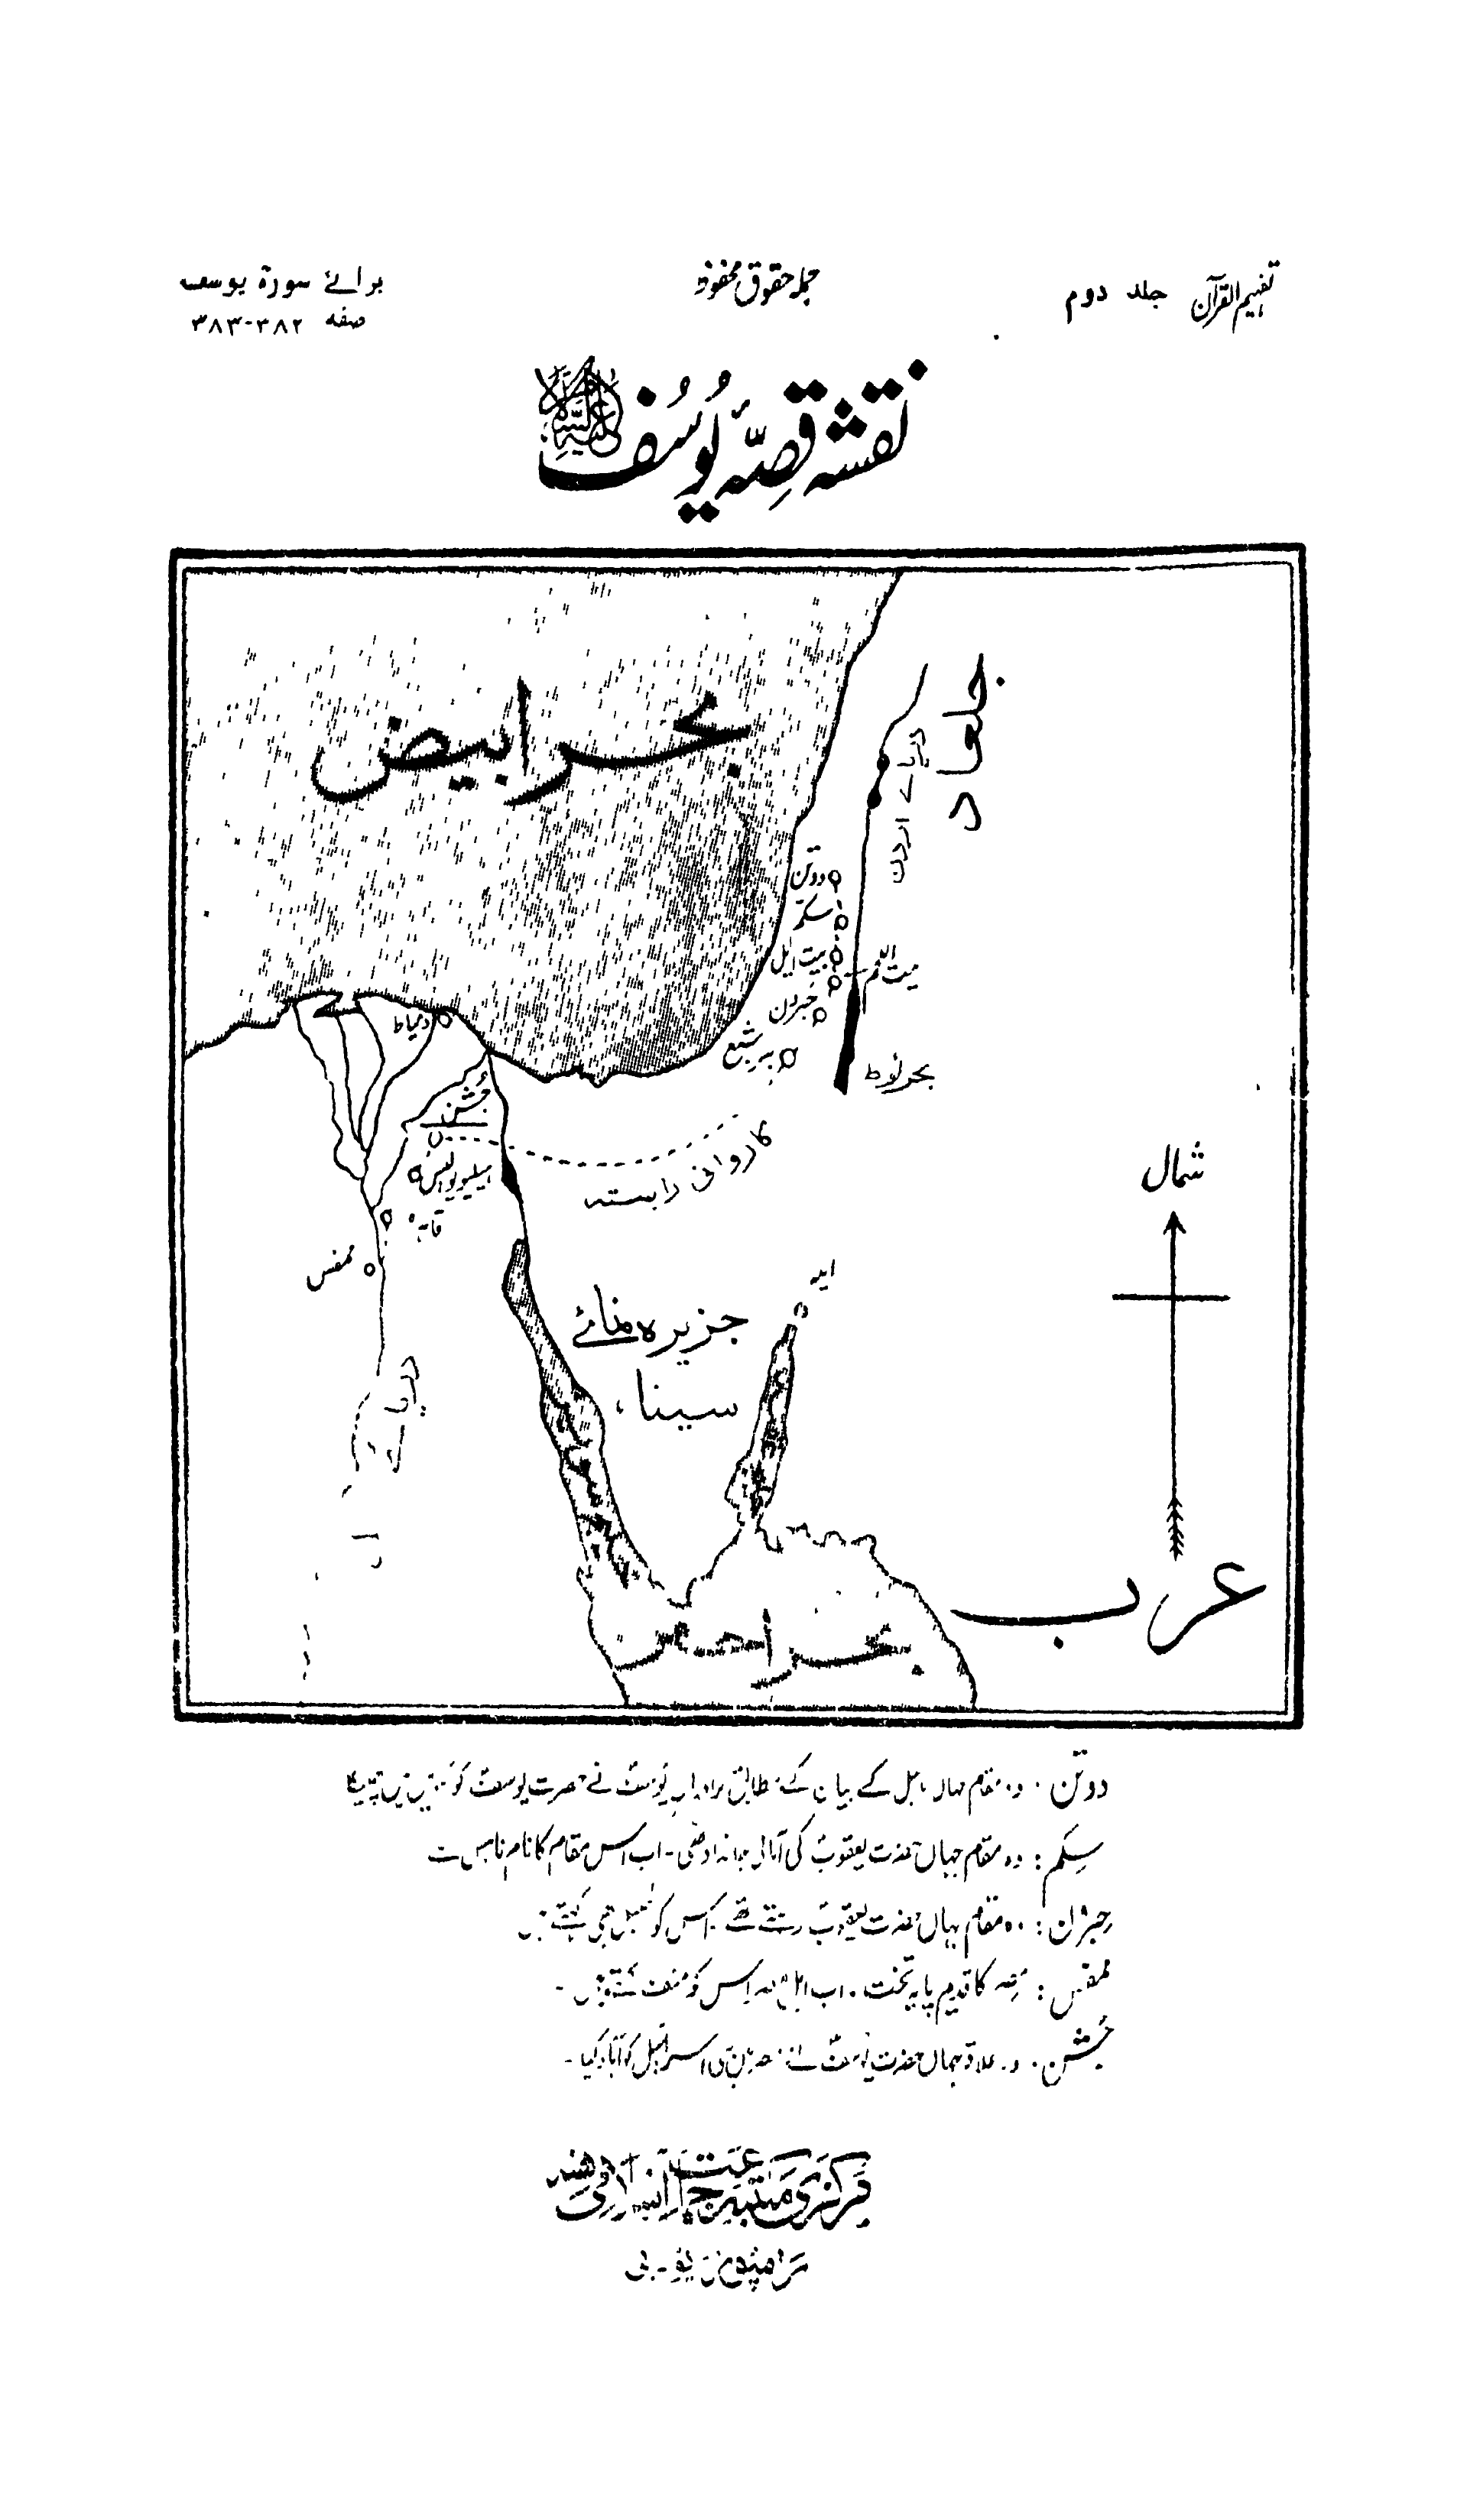 تفہیم القرآن جلد دوم
جملہ حقوق محفوظ
برائے سورۃ یوسف
صفہ ۳۸۲-۳۸۳
نقشہ قصّہ یُوسُف عَلَیہِ السَّلَام
بحر ابیض
جلعاد
دریائے اردن
دوتن
سکم
بیت ایل
بیت اللحم
حبرون
بیر شبع
بحر لوط
دمیاط
جُشن
ہیلیوپولیس
قاہرہ
ممفس
کاروانی راستہ
ایلہ
جزیرہ نمائے
سینا،
دریائے
شمال
عرب
بحر احمر
دوتن: وہ مقام جہاں بائبل کے بیان کے مطابق برادرانِ یوسفؑ نے حضرت یوسفؑ کو کنویں میں پھینکا
سِکم: وہ مقام جہاں حضرت یعقوبؑ کی آبائی جائداد تھی۔ اب اس مقام کا نام نابلس ہے
حبرُون: وہ مقام جہاں حضرت یعقوبؑ رہتے تھے۔ اس کو الخلیل بھی کہتے ہیں
ممفس: مصر کا قدیم پایہ تخت۔ اب اہلِ مصر اس کو منف کہتے ہیں۔
جُشن: وہ علاقہ جہاں حضرت یوسفؑ نے بنی اسرائیل کو آباد کیا۔
مرکزی مکتبہ جماعت اسلامی ہند
رامپور یو۔پی